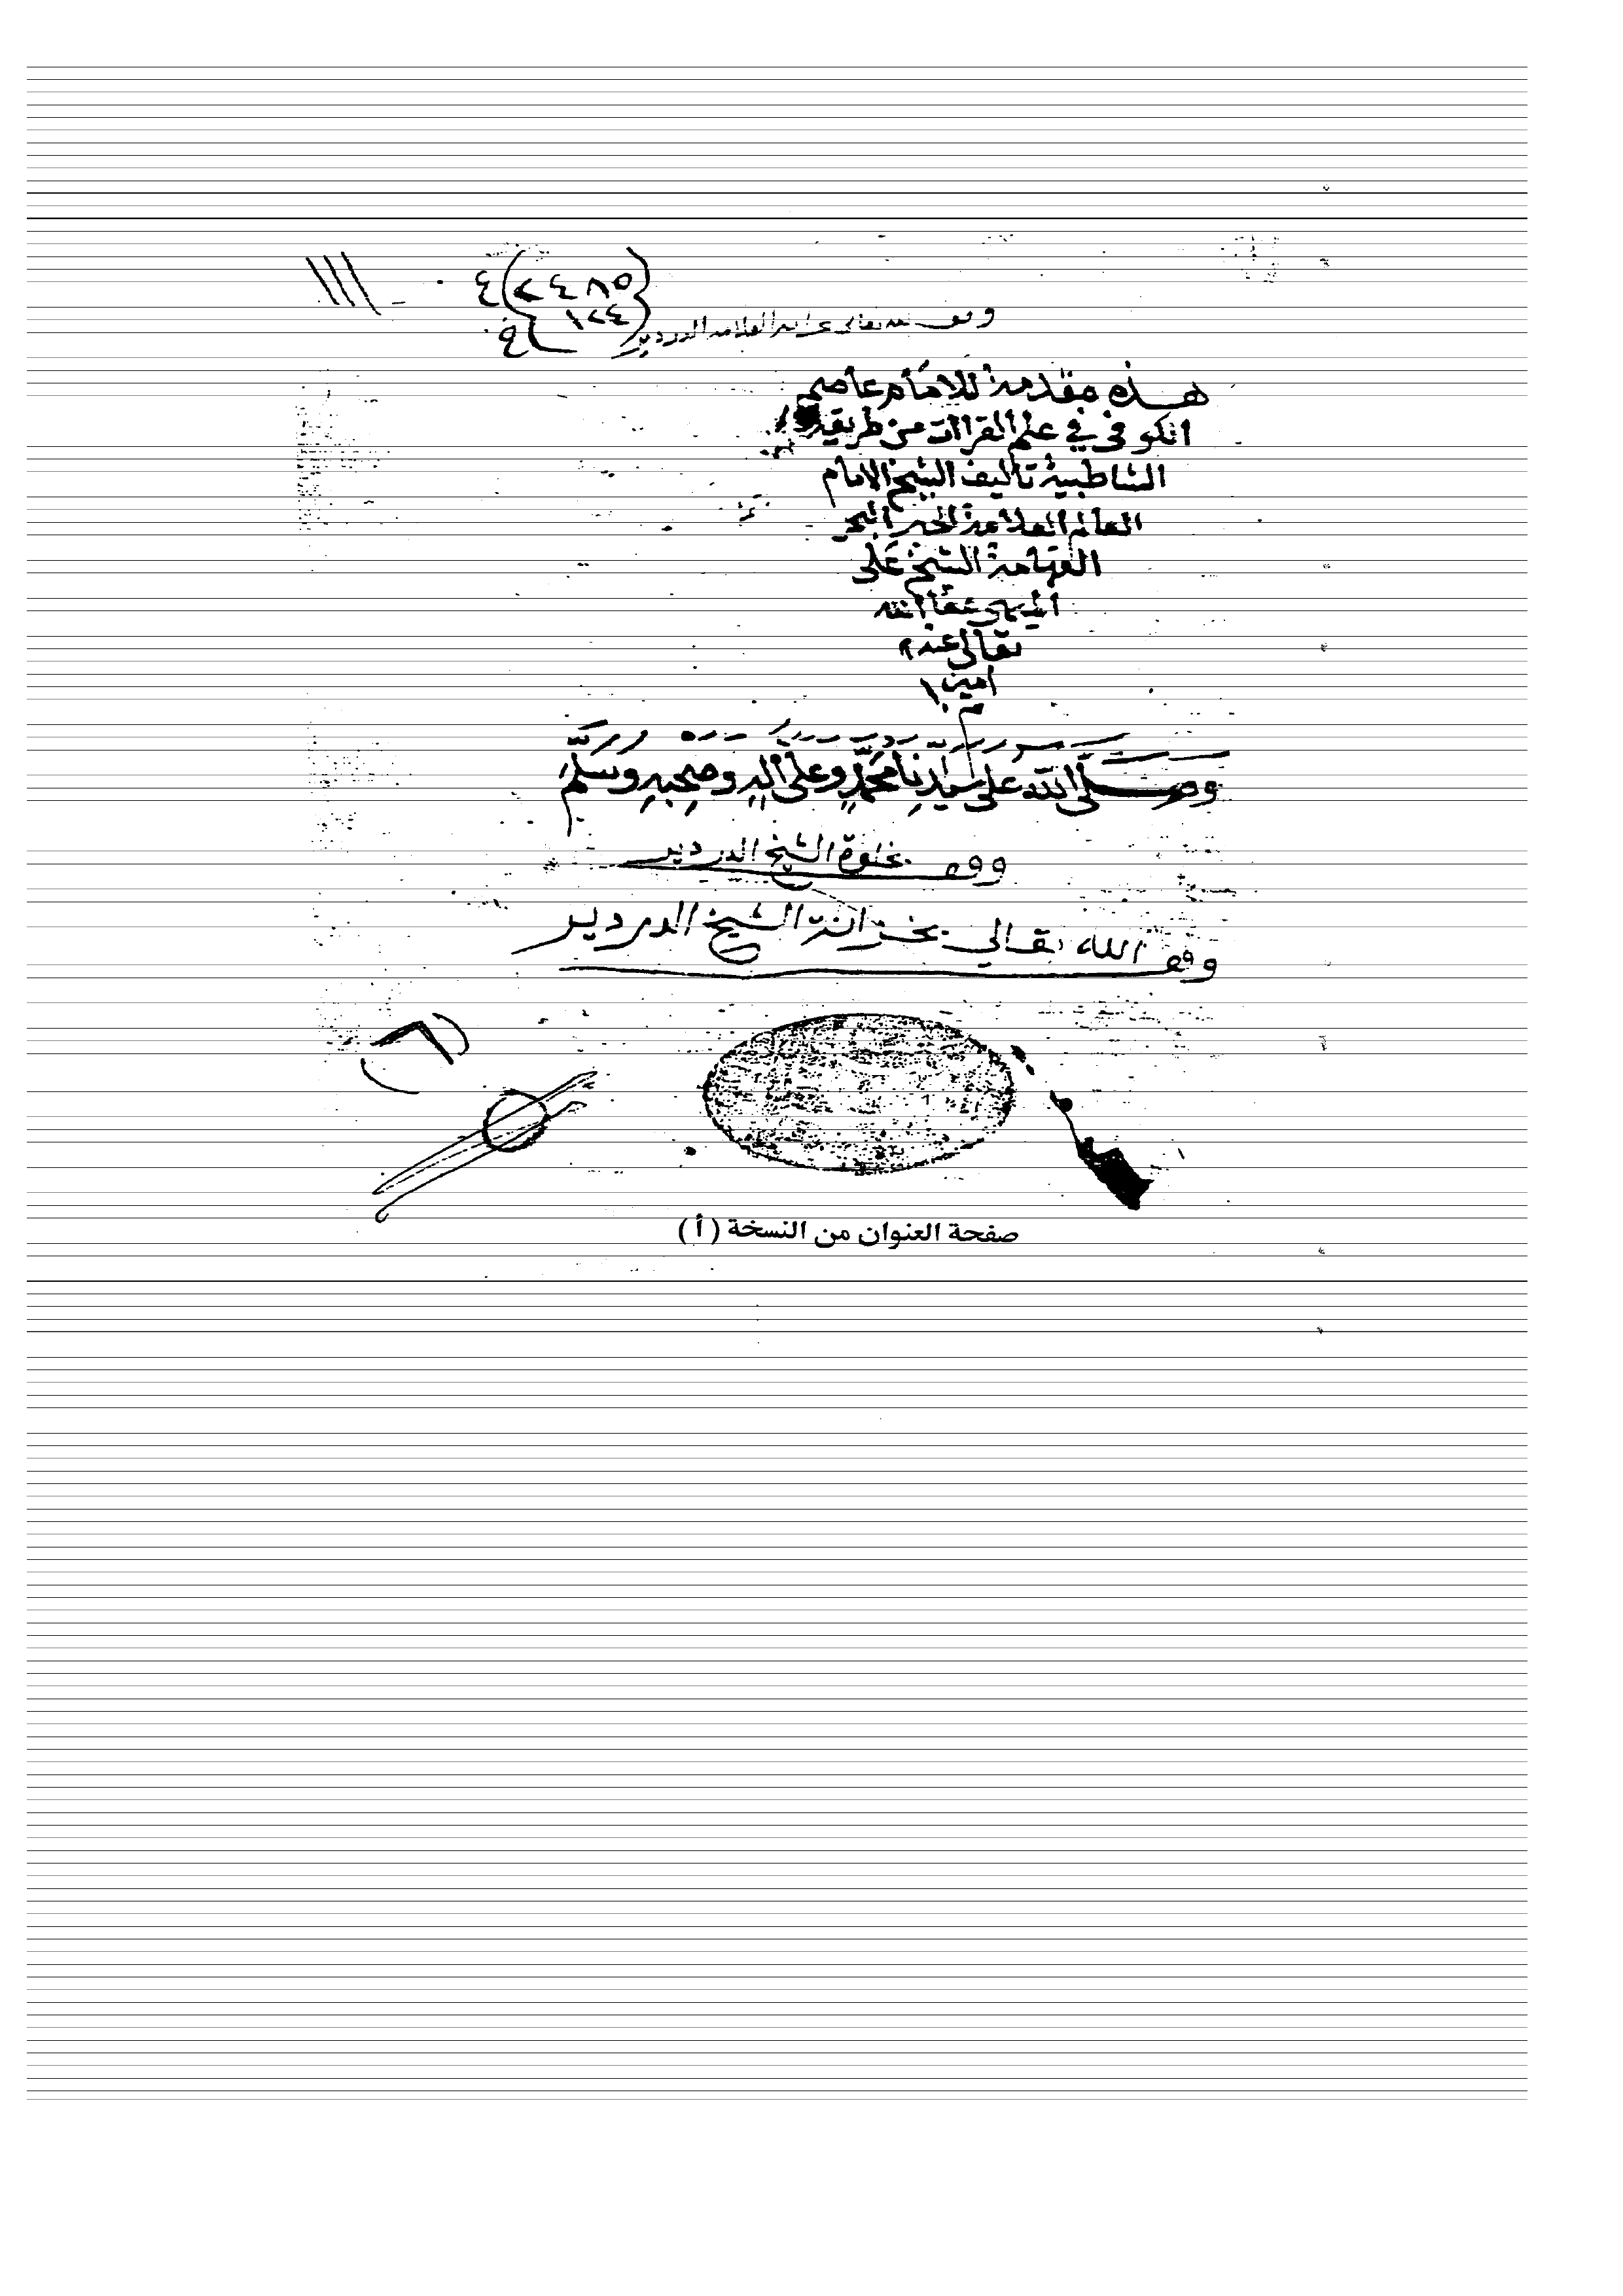 ٤ (٢٤٨٥)
١٢٤
وقف لله تعالى العلامه الدردير
هذه مقدمة للامام عاصم
الكوفى في علم القراات من طريق
الشاطبية تأليف الشيخ الامام
العالم العلامة الحبر البحر
الفهامة الشيخ على
الميهى عفا الله
تعالى عنه
امين
م
وصلى الله على سيدنا محمد وعلى اله وصحبه وسلم
وقف بخلوة الشيخ الدردير
وقف الله تعالي بخزانة الشيخ الدردير
صفحة العنوان من النسخة (أ)